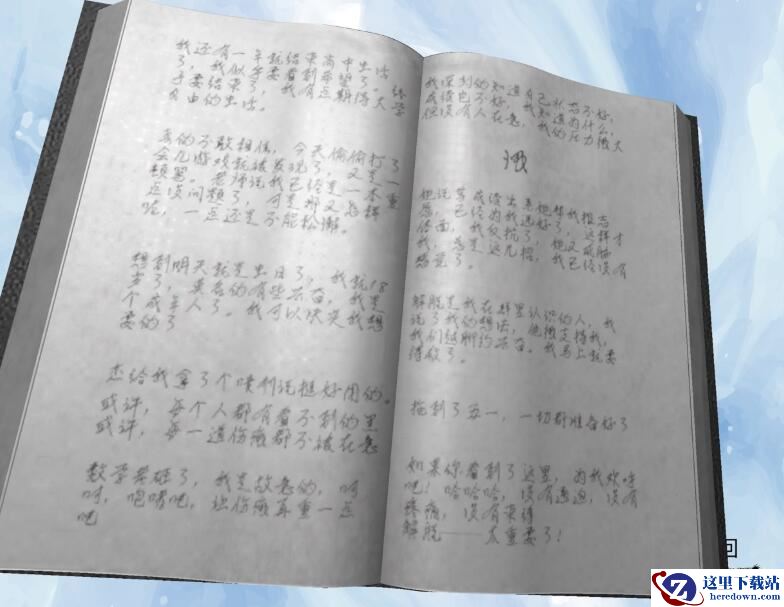 我还有一年就结束高中生活
了，我似乎要看到希望了。终
于要结束了，我有点期待大学
自由的生活。
真的不敢相信，今天偷偷打了
会儿游戏就被发现了，又是一
顿骂。老师说我已经是一本重
点没问题了，可是那又怎样
呢，一点还是不能松懈。
想到明天就是生日了，我就18
岁了，莫名的有些兴奋，我是
个成年人了。我可以决定我想
要的了
杰给我拿了个喷剂说挺好用的。
或许，每个人都有看不到的黑
或许，每一道伤疤都不被在意
数学考砸了，我是故意的，呵
呵，咆哮吧，让伤疤再重一点
吧
我深刻的知道自己状态不好，
成绩也不好，我知道为什么，
但没有人在意，我的压力很大
她说等成绩出来她帮我报志
愿，已经为我选好了，这样才
体面，我反抗了，她又威胁
我，总是这几招，我已经没有
感觉了。
解脱是我在群里认识的人，我
说了我的想法，他很支持我，
我们越聊约兴奋。我马上就要
得救了。
拖到了五一，一切都准备好了
如果你看到了这里，为我欢呼
吧！哈哈哈，没有逼迫，没有
疼痛，没有束缚
解脱——太重要了！
回
这里下载站
heredown.com